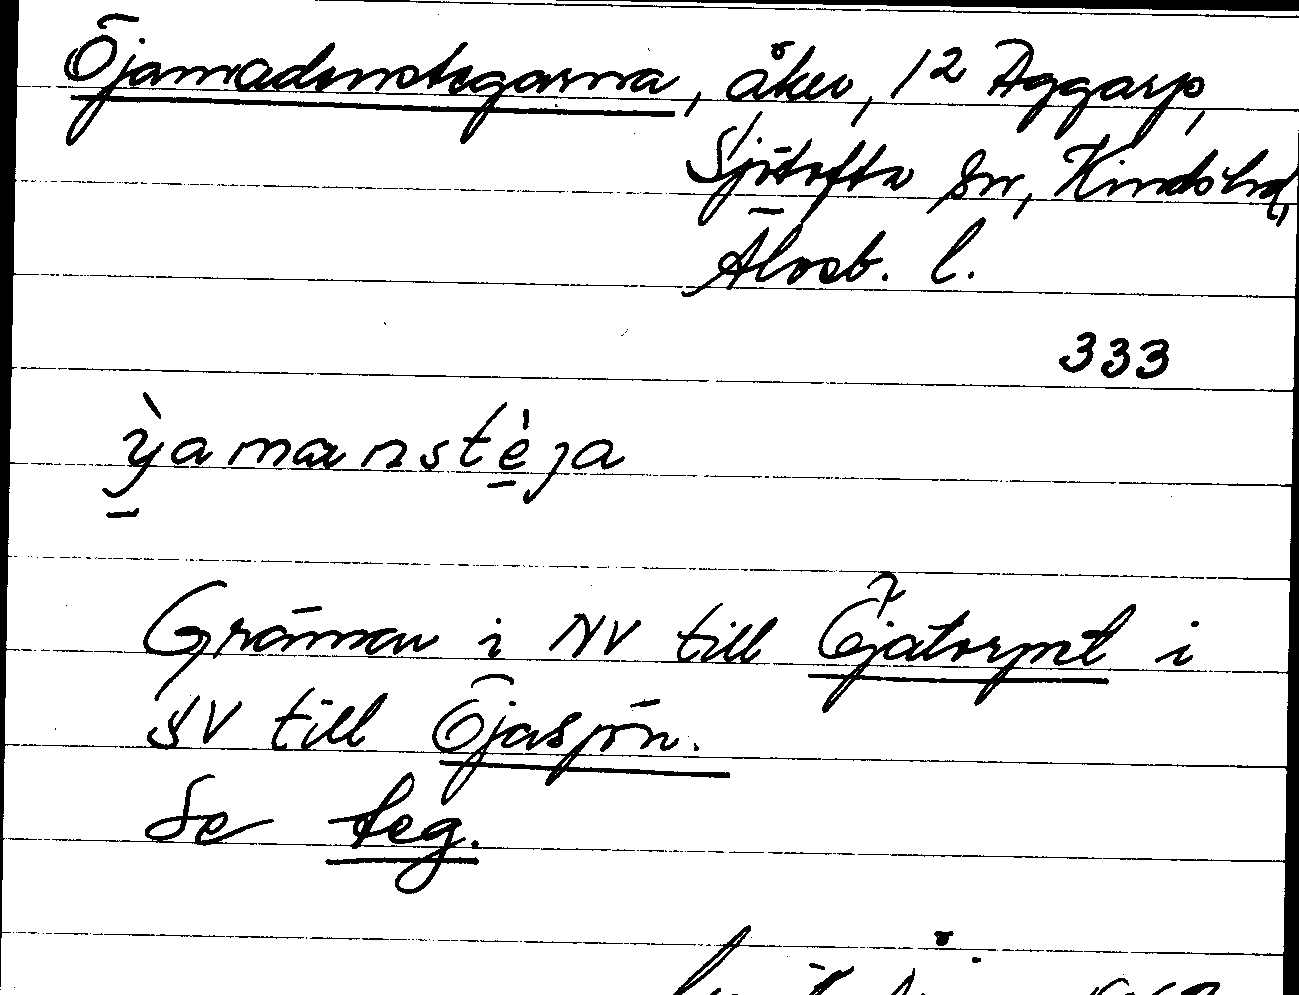 Öjamadsmotegarna, åker, 1² Aggarp,
Sjötofta sn, Kindshd,
Älvsb. l.
333
ỳ̠amanste̠̍ȷa
Gränsar i NV till Öjatorpet i
SV till Öjaspön.
Se teg.